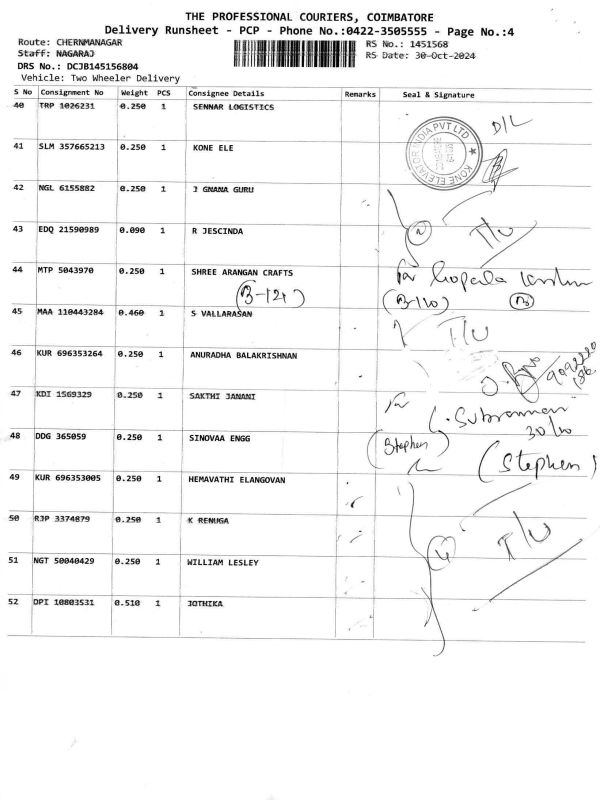 THE PROFESSIONAL COURIERS, COIMBATORE
Delivery Runsheet - PCP - Phone No.:0422-3505555 - Page No.:4
Route: CHERNMANAGAR
RS No.: 1451568
Staff: NAGARAJ
RS Date: 30-Oct-2024
DRS No.: DCJB145156804
Vehicle: Two Wheeler Delivery
S No Consignment No Weight PCS Consignee Details Remarks Seal & Signature
40 TRP 1026231 0.250 1 SENNAR LOGISTICS
D/L
KONE ELEVATOR INDIA PVT LTD
41 SLM 357665213 0.250 1 KONE ELE
42 NGL 6155882 0.250 1 J GNANA GURU
43 EDQ 21590989 0.090 1 R JESCINDA
T/U
44 MTP 5043970 0.250 1 SHREE ARANGAN CRAFTS
for Gopala
(B-121)
(B-110)
45 MAA 110443284 0.460 1 S VALLARASAN
T/U
46 KUR 696353264 0.250 1 ANURADHA BALAKRISHNAN
47 KDI 1569329 0.250 1 SAKTHI JANANI
for
30/10
48 DDG 365059 0.250 1 SINOVAA ENGG
(Stephen)
(Stephen)
49 KUR 696353005 0.250 1 HEMAVATHI ELANGOVAN
50 RJP 3374879 0.250 1 K RENUGA
T/U
51 NGT 50040429 0.250 1 WILLIAM LESLEY
52 DPI 10803531 0.510 1 JOTHIKA